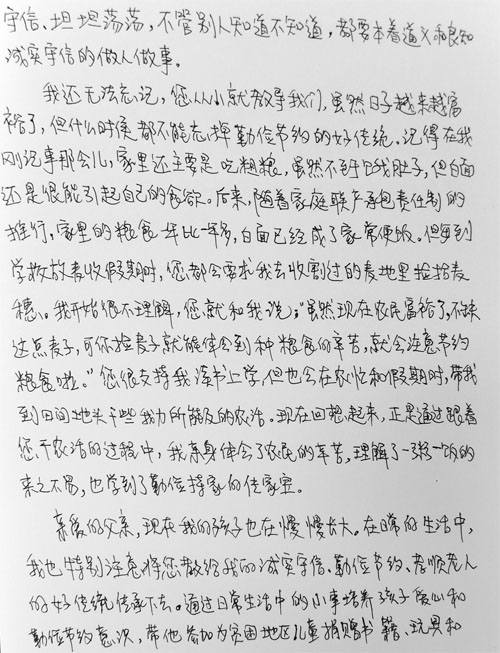 守信、坦坦荡荡，不管别人知道不知道，都要本着道义和良知
诚实守信的做人做事。
我还无法忘记，您从小就教导我们，虽然日子越来越富
裕了，但什么时候都不能忘掉勤俭节约的好传统。记得在我
刚记事那会儿，家里还主要是吃粗粮，虽然不至于饿肚子，但白面
还是很能引起自己的食欲。后来，随着家庭联产承包责任制的
推行，家里的粮食一年比一年多，白面已经成了家常便饭。但每到
学校放麦收假期时，您都会要求我去收割过的麦地里捡拾麦
穗。我开始很不理解，您就和我说："虽然现在农民富裕了，不缺
这点麦子，可你捡麦子就能体会到种粮食的辛苦，就会注意节约
粮食啦。"您很支持我读书上学，但也会在农忙和假期时，带我
到田间地头干些我力所能及的农活。现在回想起来，正是通过跟着
您干农活的过程中，我亲身体会了农民的辛苦，理解了一粥一饭的
来之不易，也学到了勤俭持家的传家宝。
亲爱的父亲，现在我的孩子也在慢慢长大。在日常的生活中，
我也特别注意将您教给我的诚实守信、勤俭节约、孝顺老人
的好传统传承下去。通过日常生活中的小事培养孩子爱心和
勤俭节约意识，带他参加为贫困地区儿童捐赠书籍、玩具和